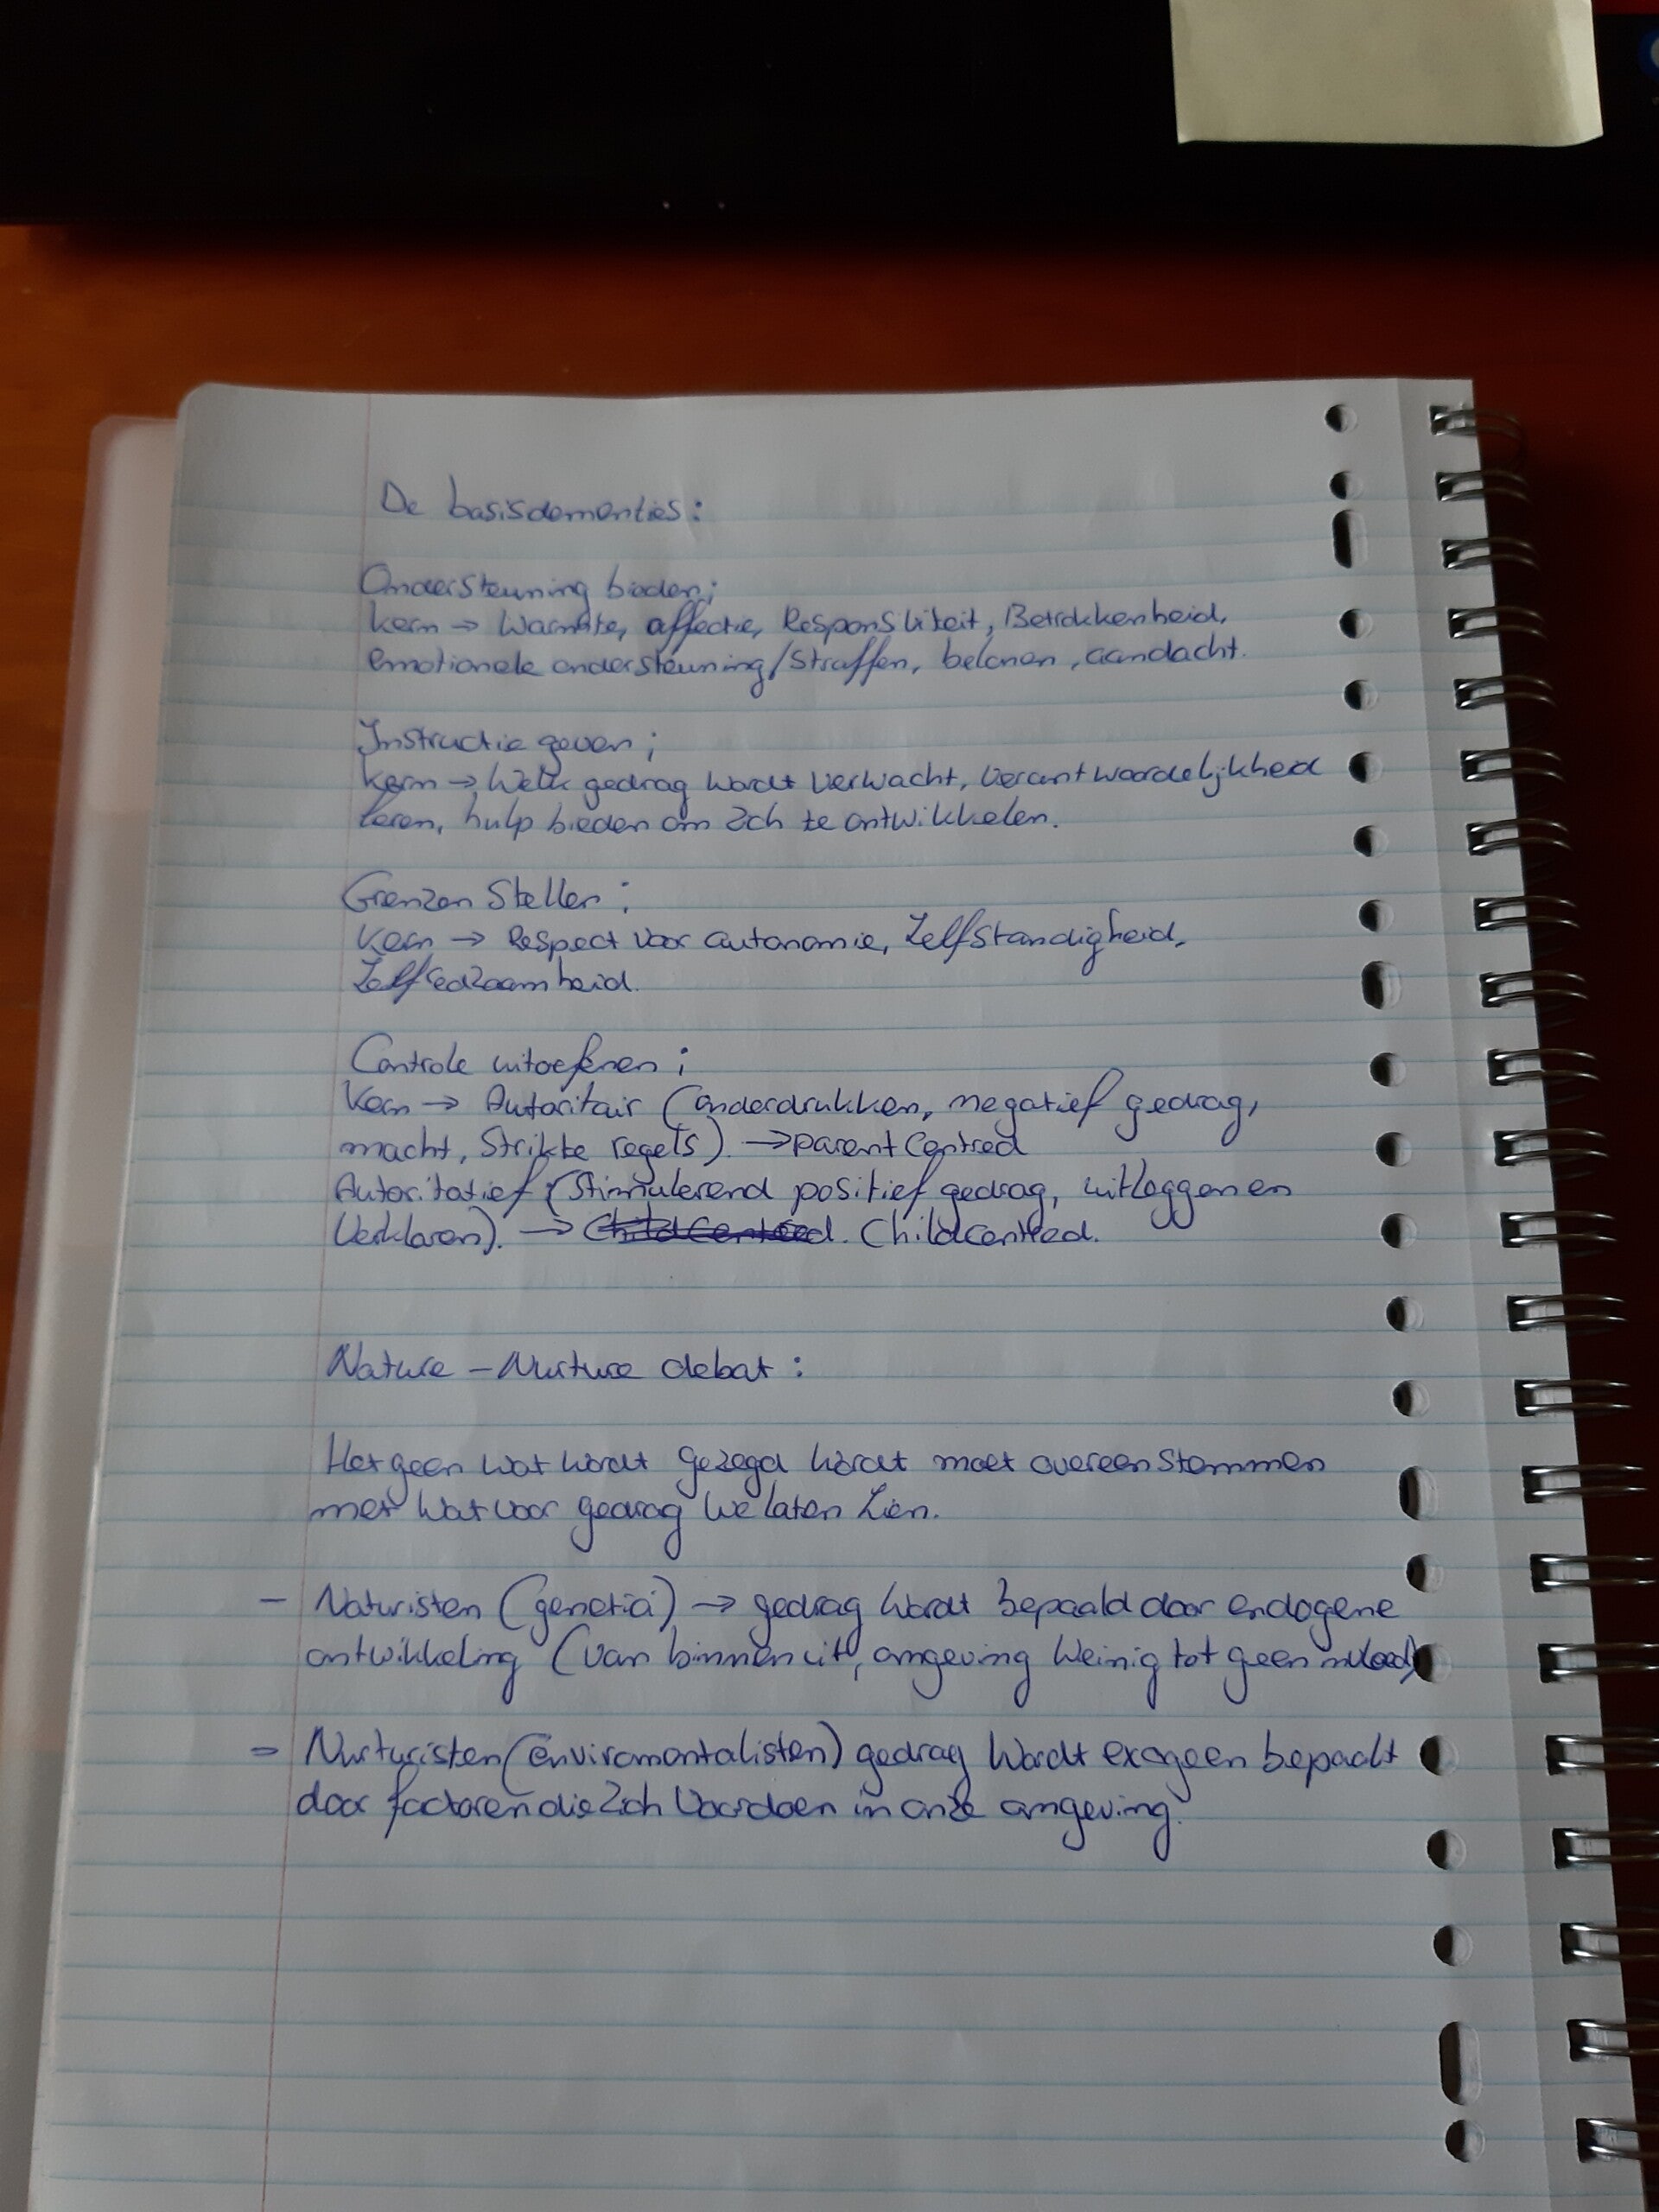 De basisdementies:
Ondersteuning bieden;
Kern → Warmte, affectie, Responsiviteit, Betrokkenheid,
emotionele ondersteuning/straffen, belonen, aandacht.
Instructie geven;
Kern → Welk gedrag wordt verwacht, verantwoordelijkheid
leren, hulp bieden om zich te ontwikkelen.
Grenzen stellen;
Kern → Respect voor autonomie, Zelfstandigheid,
Zelfredzaamheid.
Controle uitoefenen;
Kern → Autoritair (onderdrukken, negatief gedrag,
macht, strikte regels). → parent centred
Autoritatief (stimulerend positief gedrag, uitleggen en
verklaren). → Childcentred. Childcentred.
Nature - Nurture debat:
Het geen wat wordt gezegd wordt moet overeenstemmen
met wat voor gedrag we laten zien.
- Naturisten (genetici) → gedrag wordt bepaald door endogene
ontwikkeling (van binnen uit, omgeving weinig tot geen invloed)
- Nurturisten (enviromentalisten) gedrag wordt exogeen bepaalt
door factoren die zich voordoen in onze omgeving.